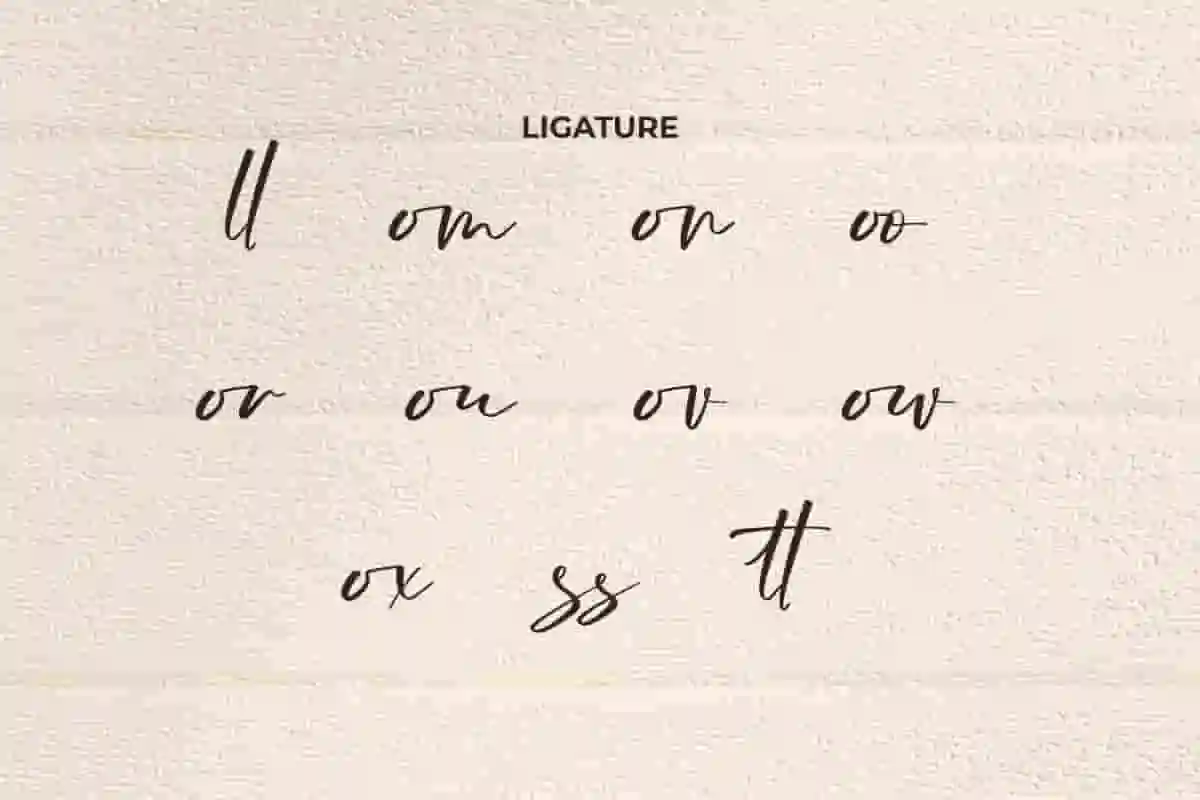 LIGATURE
ll om on oo
or ou ov ow
ox ss tt